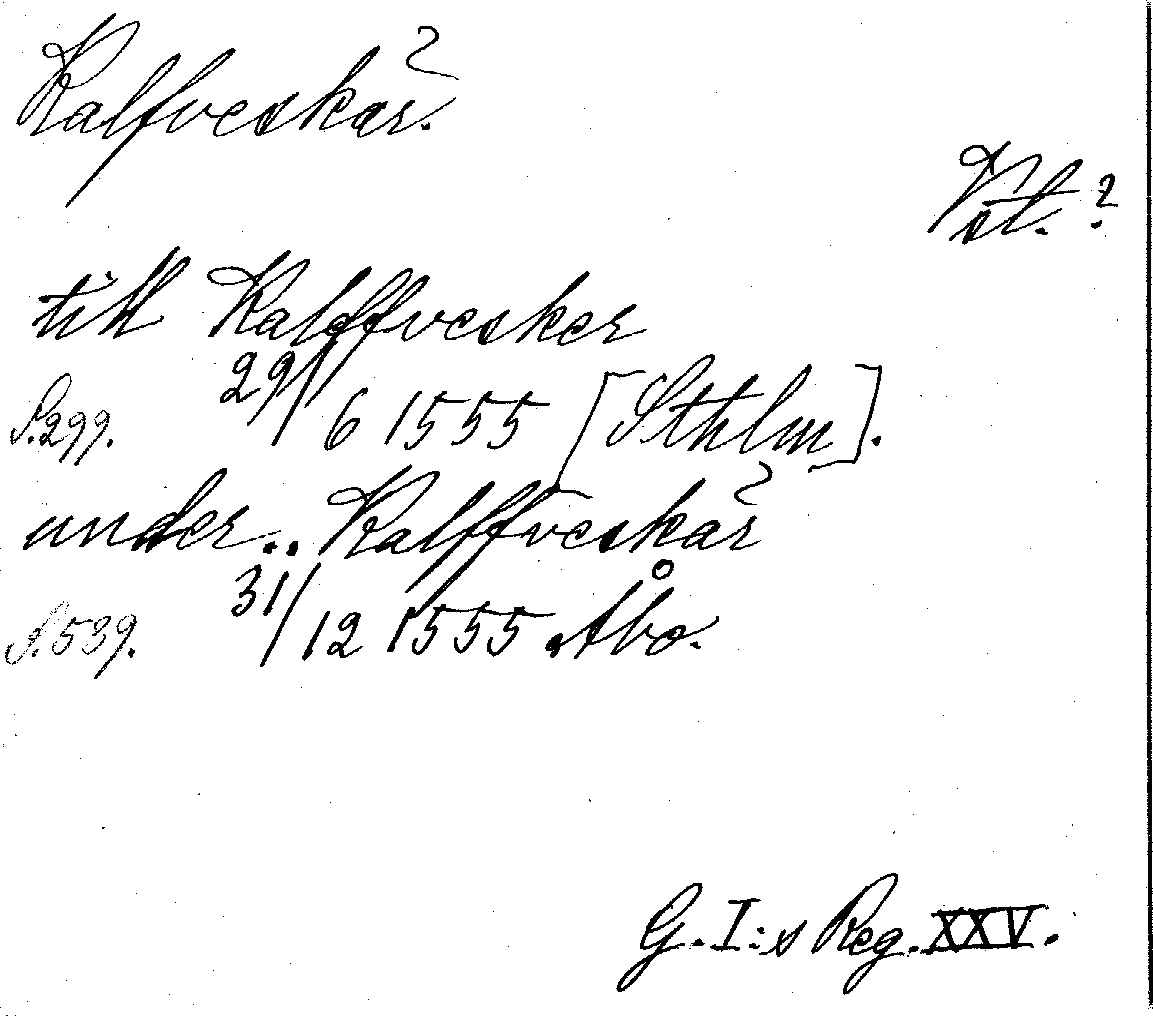 Kalfveskär.
Kst.?
till Kalffvesker
S.299. 29/6 1555 [Sthlm].
under.. Kalffveskär
S.539. 31/12 1555 Åbo.
G.I:s Reg. XXV.